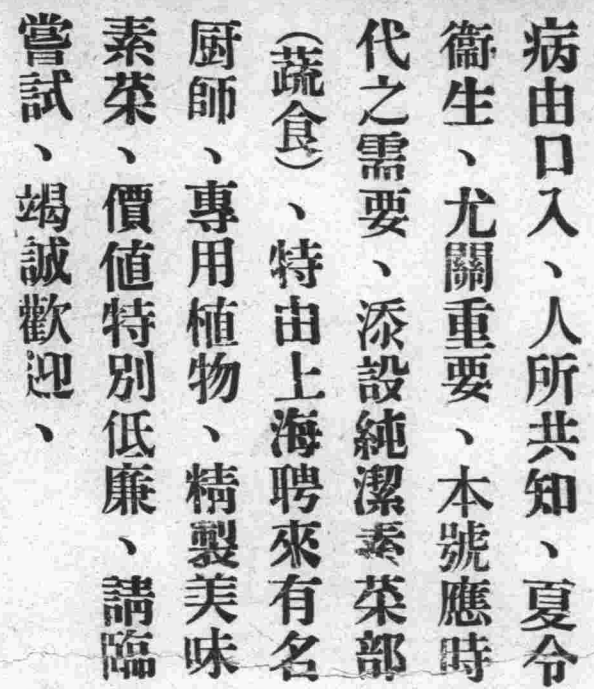 病由口入、人所共知、夏令
衞生、尤關重要、本號應時
代之需要、添設純潔素菜部
（蔬食）、特由上海聘來有名
厨師、專用植物、精製美味
素菜、價值特別低廉、請臨
嘗試、竭誠歡迎、